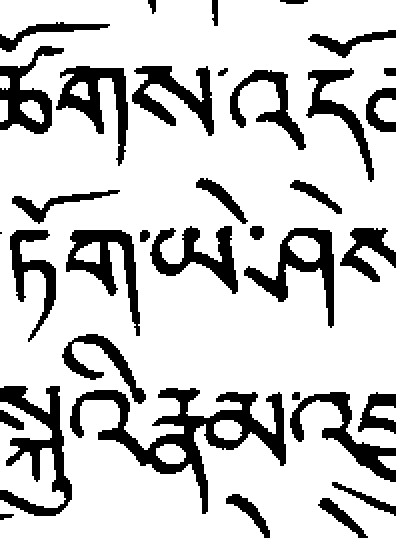 ཚོགས་འདོ
ཏོག་ཡེ་ཤེས
སྐུའི་རྣམ་འ